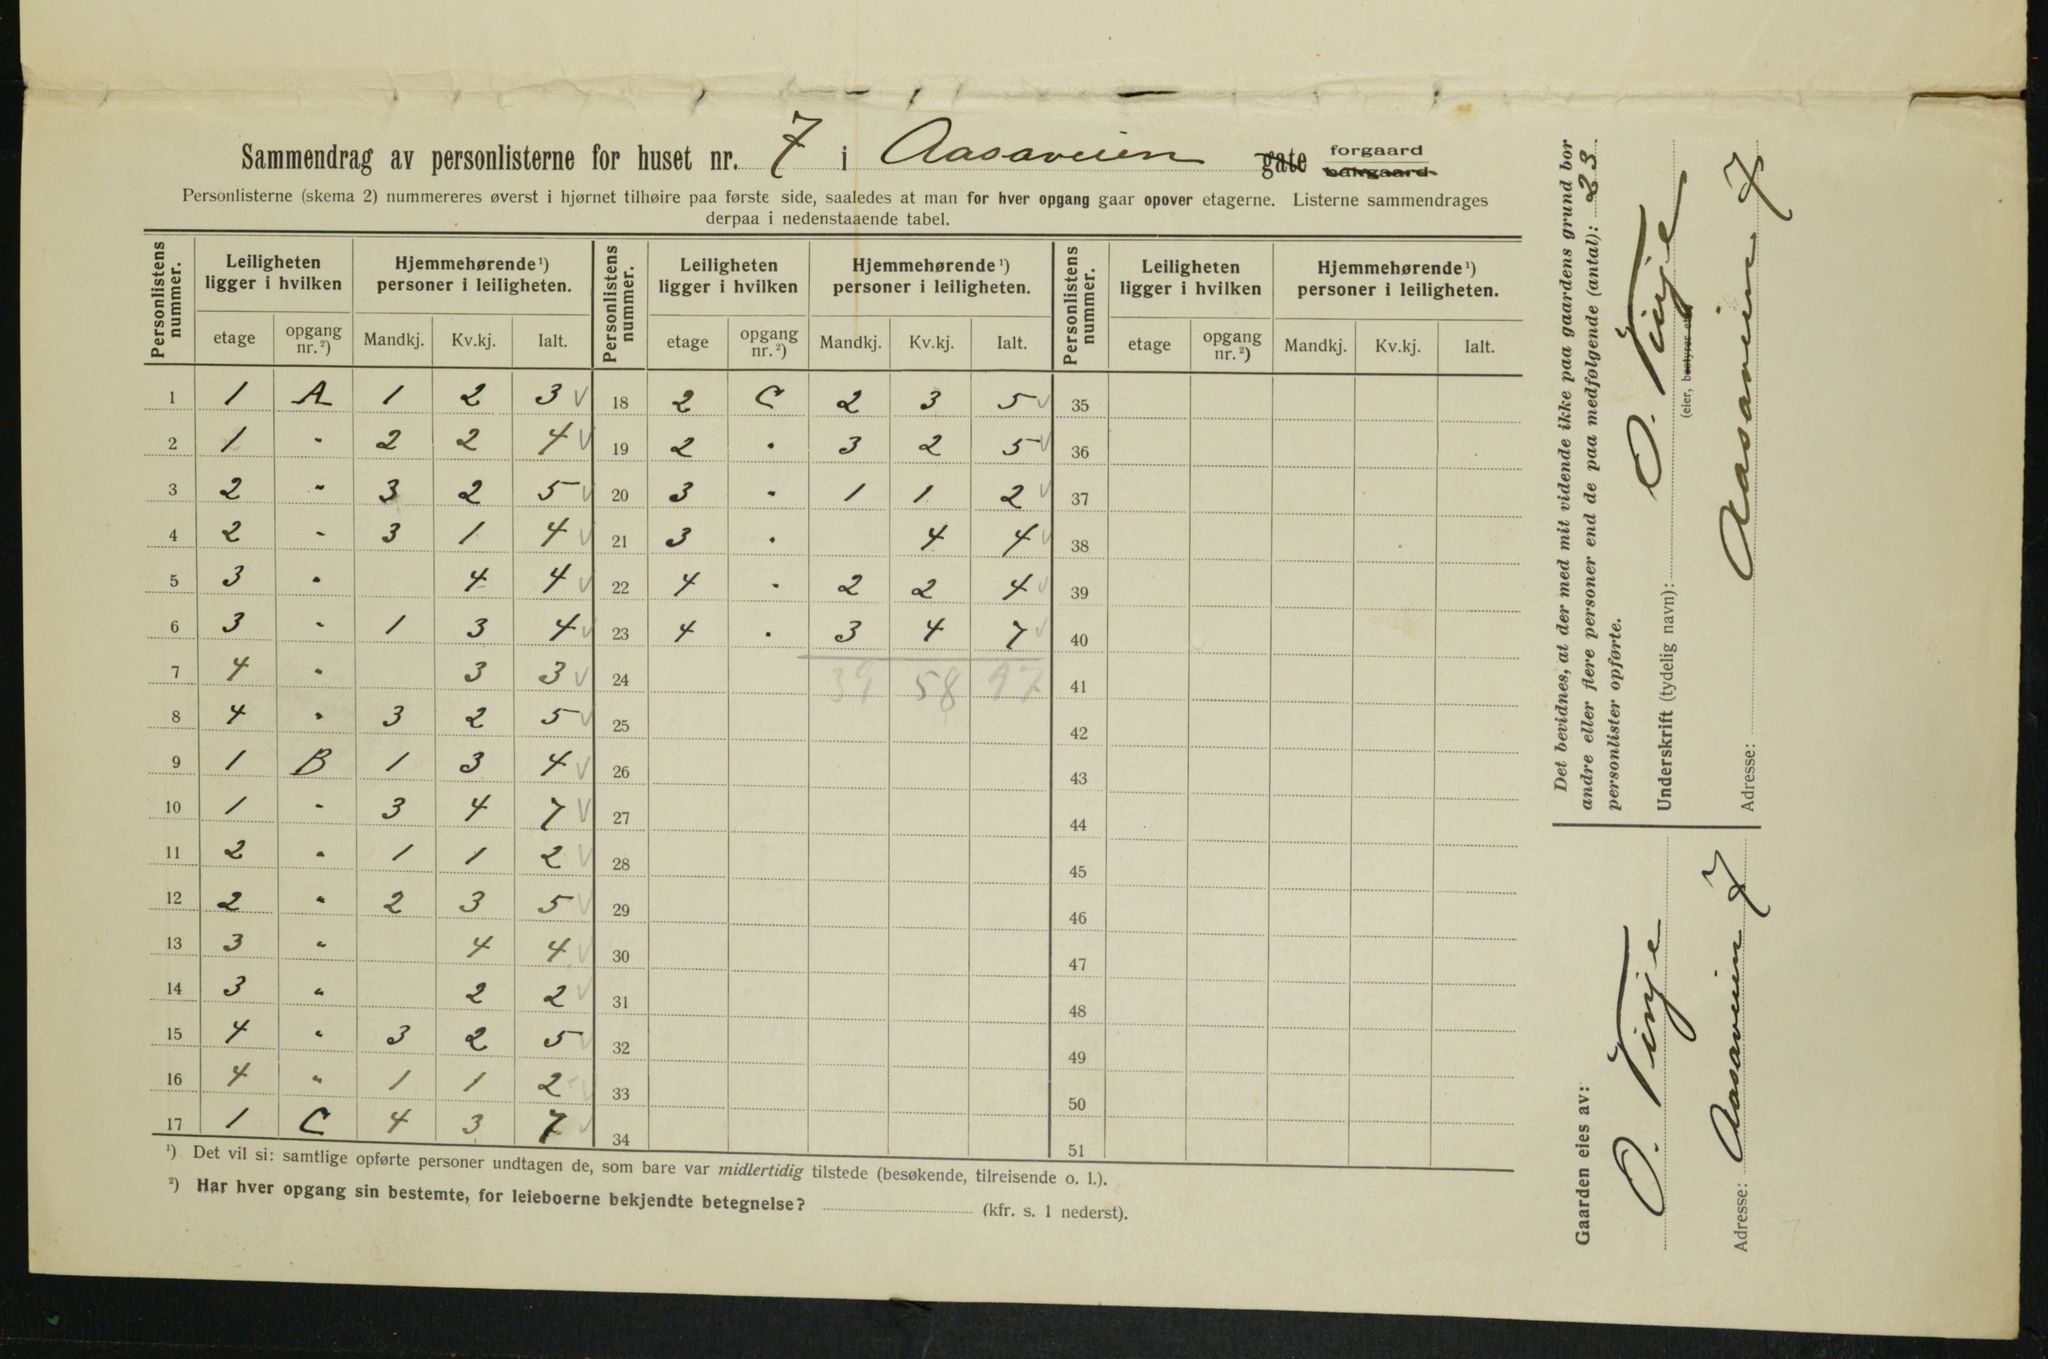 Sammendrag av personlisterne for huset nr. 7 i Aasaveien gate forgaard bakgaard.
Personlisterne (skema 2) nummereres øverst i hjørnet tilhøire paa første side, saaledes at man for hver opgang gaar opover etagerne. Listerne sammendrages
derpaa i nedenstaaende tabel.
Personlistens nummer. Leiligheten ligger i hvilken Hjemmehørende ¹) personer i leiligheten. Personlistens nummer. Leiligheten ligger i hvilken Hjemmehørende ¹) personer i leiligheten. Personlistens nummer. Leiligheten ligger i hvilken Hjemmehørende ¹) personer i leiligheten.
etage opgang nr. ²) Mandkj. Kv.kj. Ialt. etage opgang nr. ²) Mandkj. Kv.kj. Ialt. etage opgang nr. ²) Mandkj. Kv.kj. Ialt.
1 1 A 1 2 3 √ 18 2 C 2 3 5 √ 35
2 1 " 2 2 4 √ 19 2 " 3 2 5 √ 36
3 2 " 3 2 5 √ 20 3 " 1 1 2 √ 37
4 2 " 3 1 4 √ 21 3 " 4 4 √ 38
5 3 " 4 4 √ 22 4 " 2 2 4 √ 39
6 3 " 1 3 4 √ 23 4 " 3 4 7 √ 40
7 4 " 3 3 √ 24 39 58 97 41
8 4 " 3 2 5 √ 25 42
9 1 B 1 3 4 √ 26 43
10 1 " 3 4 7 √ 27 44
11 2 " 1 1 2 √ 28 45
12 2 " 2 3 5 √ 29 46
13 3 " 4 4 √ 30 47
14 3 " 2 2 √ 31 48
15 4 " 3 2 5 √ 32 49
16 4 " 1 1 2 √ 33 50
17 1 C 4 3 7 √ 34 51
¹) Det vil si: samtlige opførte personer undtagen de, som bare var midlertidig tilstede (besøkende, tilreisende o. l.).
²) Har hver opgang sin bestemte, for leieboerne bekjendte betegnelse? (kfr. s. 1 nederst).
Det bevidnes, at der med mit vidende ikke paa gaardens grund bor
andre eller flere personer end de paa medfølgende (antal): 23
personlister opførte.
Underskrift (tydelig navn): O. Tinje
(eier, bestyrer etc.)
Adresse: Aasaveien 7
Gaarden eies av:
O. Tinje
Adresse: Aasaveien 7